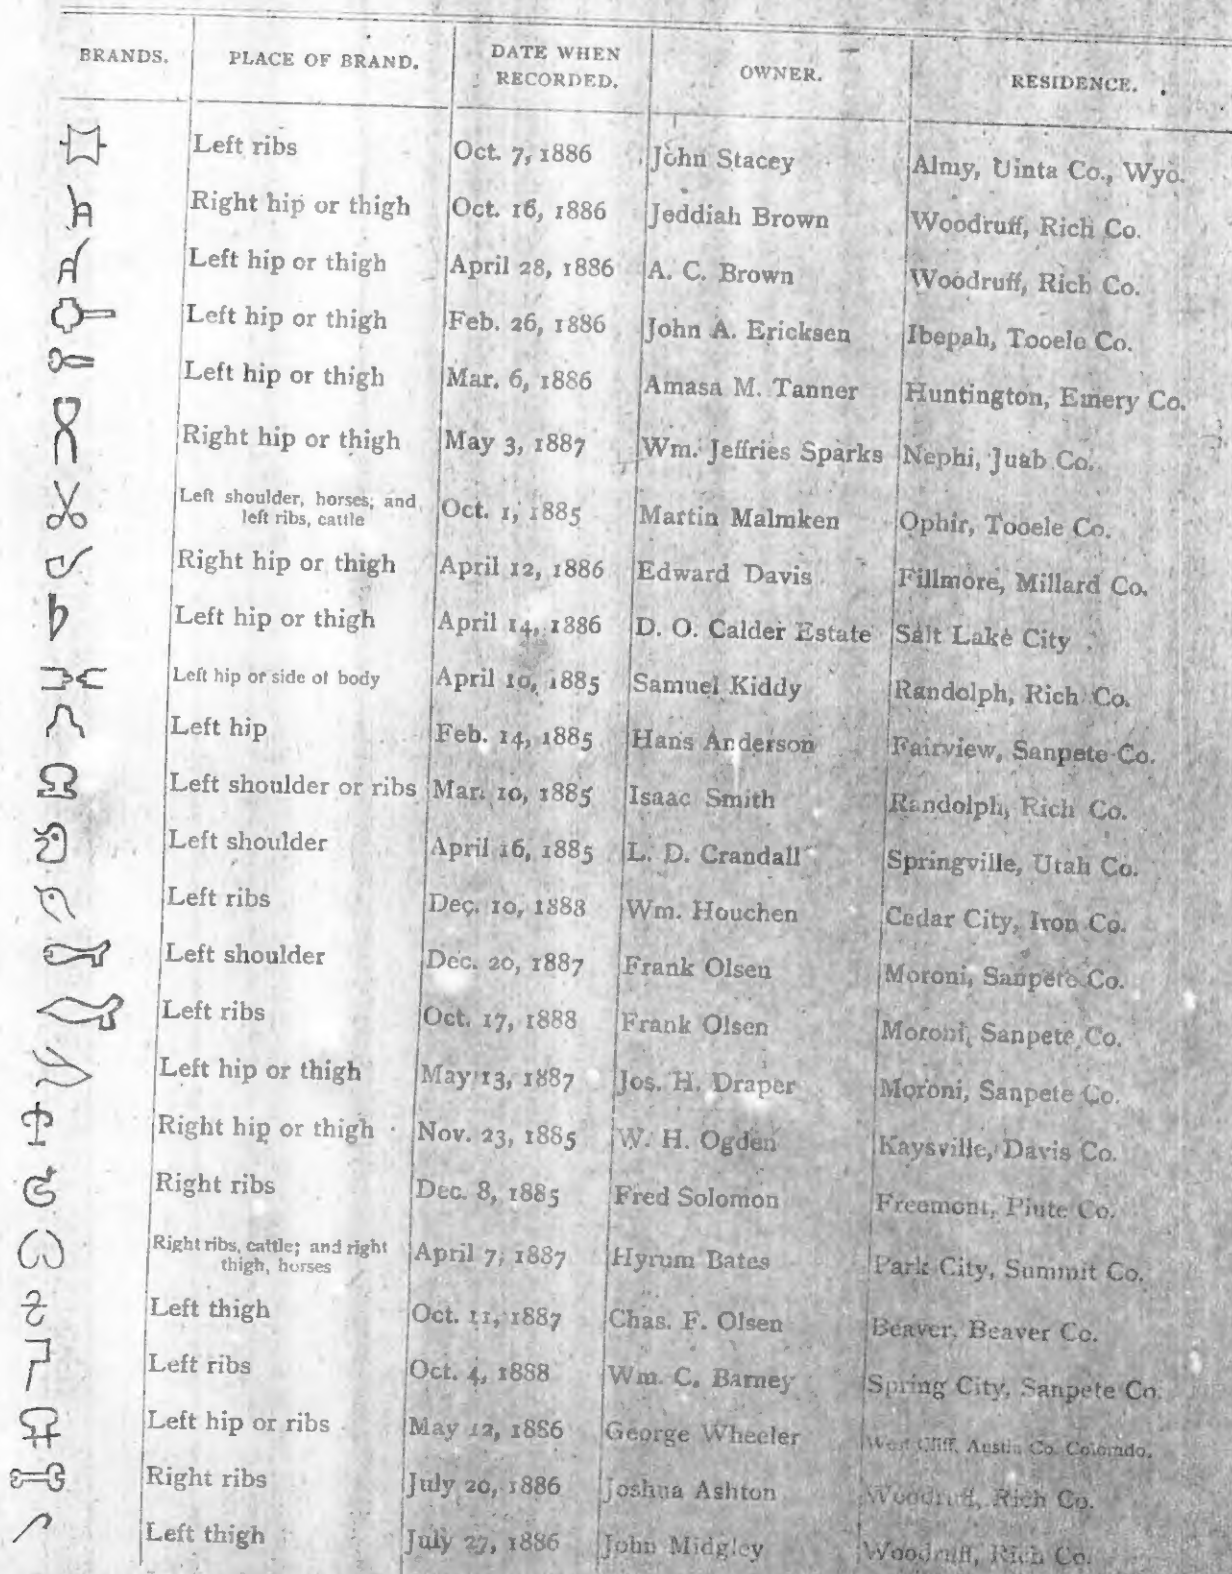 BRANDS. PLACE OF BRAND. DATE WHEN RECORDED. OWNER. RESIDENCE.
Left ribs Oct. 7, 1886 John Stacey Almy, Uinta Co., Wyo.
Right hip or thigh Oct. 16, 1886 Jeddiah Brown Woodruff, Rich Co.
Left hip or thigh April 28, 1886 A. C. Brown Woodruff, Rich Co.
Left hip or thigh Feb. 26, 1886 John A. Ericksen Ibepah, Tooele Co.
Left hip or thigh Mar. 6, 1886 Amasa M. Tanner Huntington, Emery Co.
Right hip or thigh May 3, 1887 Wm. Jeffries Sparks Nephi, Juab Co.
Left shoulder, horses, and left ribs, cattle Oct. 1, 1885 Martin Malmken Ophir, Tooele Co.
Right hip or thigh April 12, 1886 Edward Davis Fillmore, Millard Co.
Left hip or thigh April 14, 1886 D. O. Calder Estate Salt Lake City
Left hip or side of body April 10, 1885 Samuel Kiddy Randolph, Rich Co.
Left hip Feb. 14, 1885 Hans Anderson Fairview, Sanpete Co.
Left shoulder or ribs Mar. 10, 1885 Isaac Smith Randolph, Rich Co.
Left shoulder April 16, 1885 L. D. Crandall Springville, Utah Co.
Left ribs Dec. 10, 1888 Wm. Houchen Cedar City, Iron Co.
Left shoulder Dec. 20, 1887 Frank Olsen Moroni, Sanpete Co.
Left ribs Oct. 17, 1888 Frank Olsen Moroni, Sanpete Co.
Left hip or thigh May 13, 1887 Jos. H. Draper Moroni, Sanpete Co.
Right hip or thigh Nov. 23, 1885 W. H. Ogden Kaysville, Davis Co.
Right ribs Dec. 8, 1885 Fred Solomon Freemont, Piute Co.
Right ribs, cattle; and right thigh, horses April 7, 1887 Hyrum Bates Park City, Summit Co.
Left thigh Oct. 11, 1887 Chas. F. Olsen Beaver, Beaver Co.
Left ribs Oct. 4, 1888 Wm. C. Barney Spring City, Sanpete Co.
Left hip or ribs May 12, 1886 George Wheeler West Cliff, Austin Co. Colorado.
Right ribs July 20, 1886 Joshua Ashton Woodruff, Rich Co.
Left thigh July 27, 1886 John Midgley Woodruff, Rich Co.